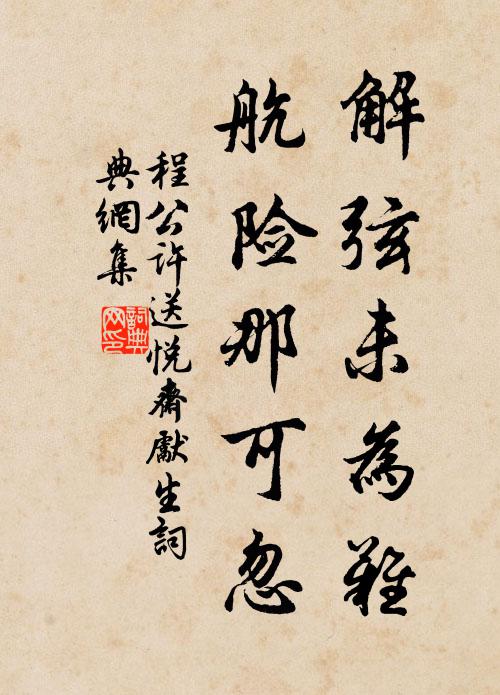 解弦未為難
航险那可忽
程公许送悦齋獻生詞
典網集
詞典
网印